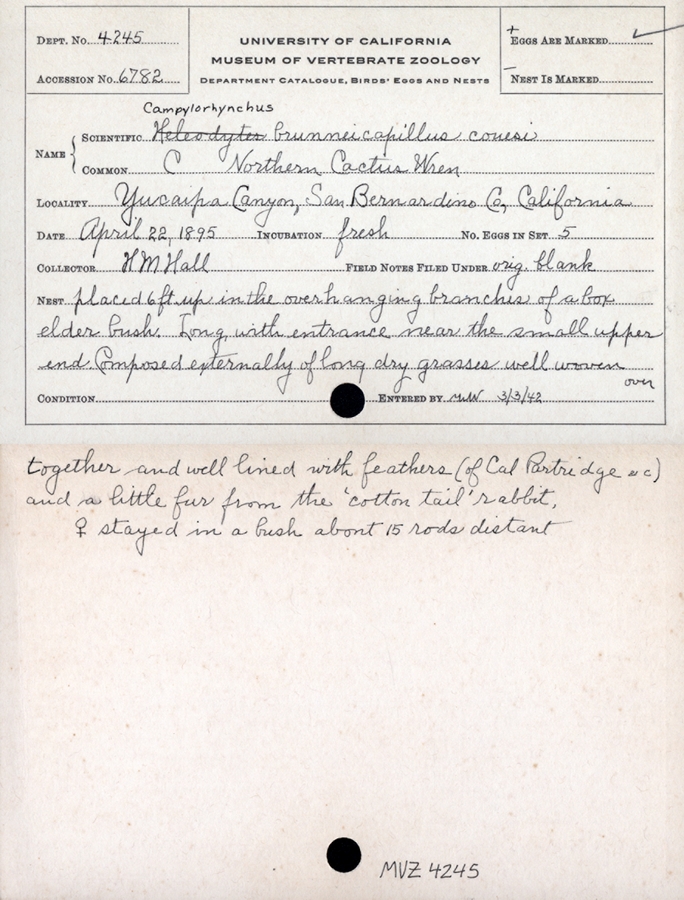 DEPT. NO. 4245
ACCESSION NO. 6782
UNIVERSITY OF CALIFORNIA
MUSEUM OF VERTEBRATE ZOOLOGY
DEPARTMENT CATALOGUE, BIRDS' EGGS AND NESTS
+ EGGS ARE MARKED ✓
– NEST IS MARKED
Campylorhynchus
NAME { SCIENTIFIC Heleodytes brunneicapillus couesi
COMMON C Northern Cactus Wren
LOCALITY Yucaipa Canyon, San Bernardino Co, California
DATE April 22, 1895 INCUBATION fresh NO. EGGS IN SET 5
COLLECTOR H M Hall FIELD NOTES FILED UNDER orig. blank
NEST placed 6 ft. up in the overhanging branches of a box
elder bush. Long, with entrance near the small upper
end. Composed externally of long dry grasses well woven
over
CONDITION ENTERED BY MW 3/3/42
together and well lined with feathers (of Cal Partridge &c)
and a little fur from the 'cotton tail' rabbit,
♀ stayed in a bush about 15 rods distant
MVZ 4245